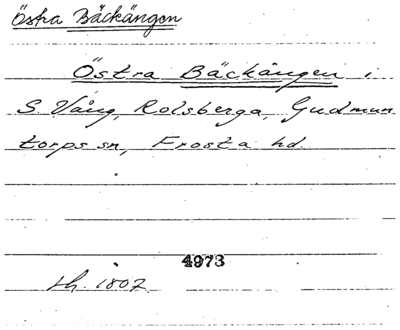 Östra Bäckängen
Östra Bäckängen i
S. Vång, Rolsberga, Gudmun
torps sn, Frosta hd.
4973
Lh. 1802